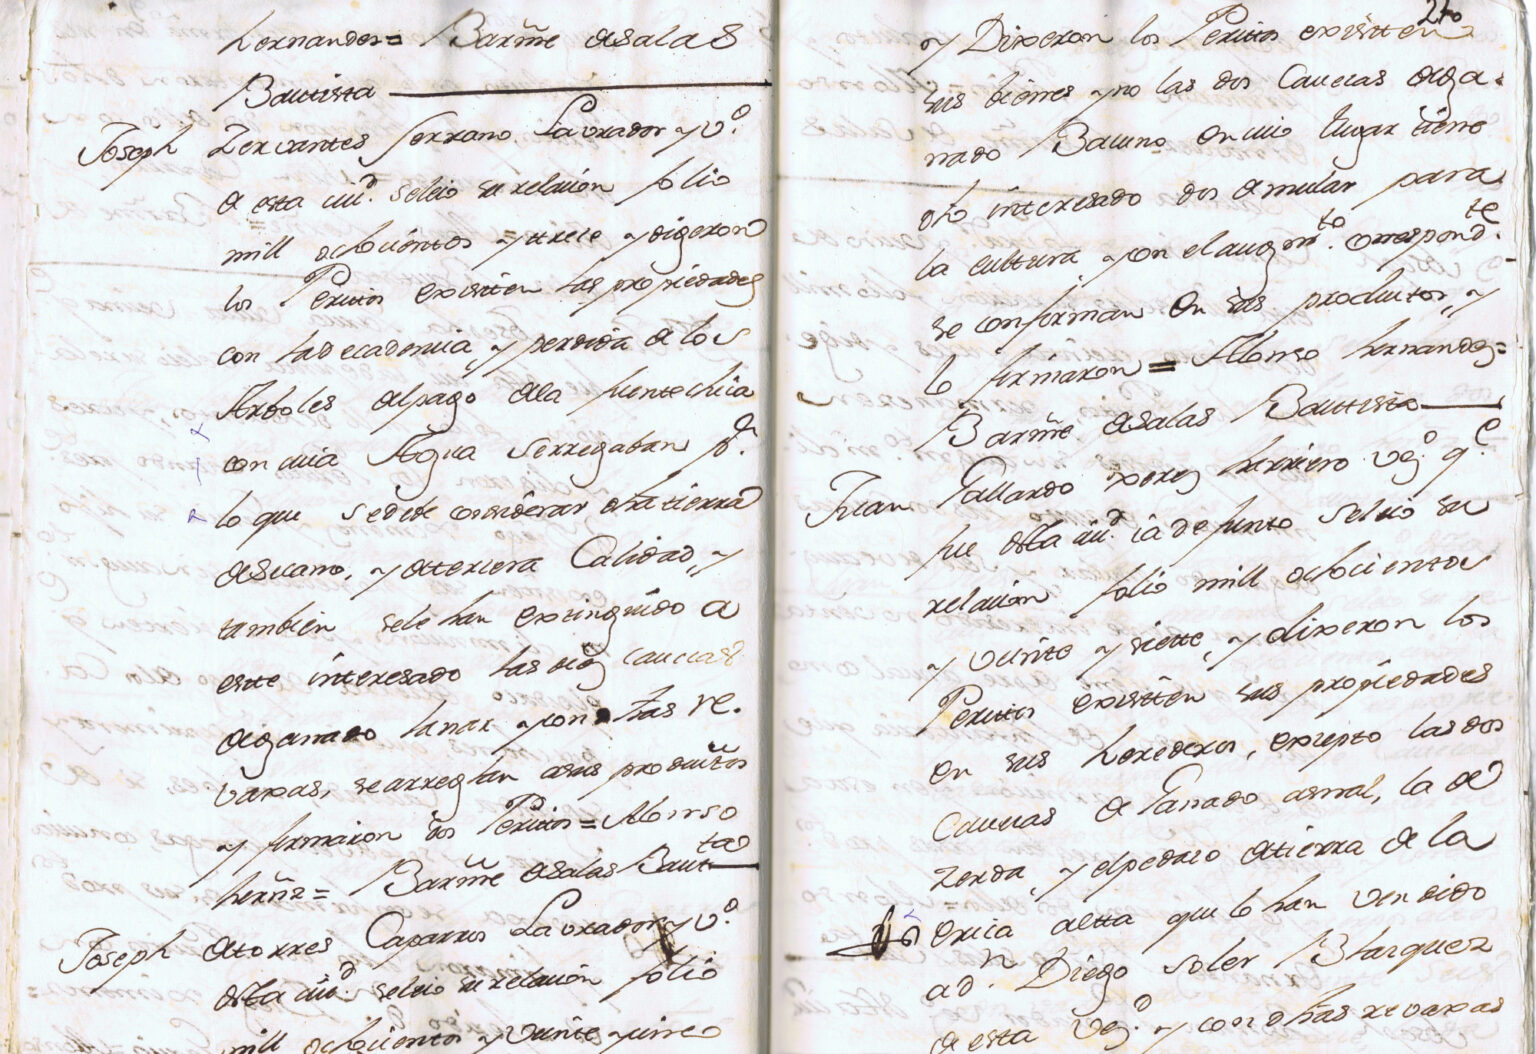 Hernandes= Barñe de salas
Bautista
Joseph Zervantes Serrano Lavrador y v.º
de esta ciu.d se leio su relacion folio
mill ochocientos y trece y digeron
los Peritos existen las propiedades
con la decadencia y perdida de los
Arboles del pago de la fuente chica
con cuia Agua se rregaban p.r
lo que se deve considerar dha tierra
de secano, y de tterzera Calidad, y
tambien se le han extinguido a
este interesado las diez cavezas
de ganado lanar y con dhas re-
vaxas, se arreglan a sus productos
y firmaron dos Peritos = Alonso
herñs= Barñe de salas Bauttas
Joseph de torres Caparros Lavrador y v.º
desta ciu.d se leio su relacion folio
mill ochocientos y veinte y cinco
210
y Dixeron los Peritos existten
sus bienes y no las dos Cavezas de ga-
nado Bacuno en cuio lugar tiene
dho interesado dos de mular para
la cultura y con el augm.to correspond.te
se conforman en sus productos, y
lo firmaron = Alonso hernandez=
Barñe de salas Bautista
Juan Gallardo xerez herrero vez.º q.e
fue desta ciu.d ia defunto se leio su
relacion folio mill ochocientos
y veinte y siette, y dixeron los
Peritos existten sus propiedades
en sus herederos, excepto las dos
Cavezas de Ganado asnal, la de
zerda, y el pedazo de tierra de la
erica altta que lo han vendido
a d.n Diego soler Blazquez
de esta vez.d y con dhas revaxas